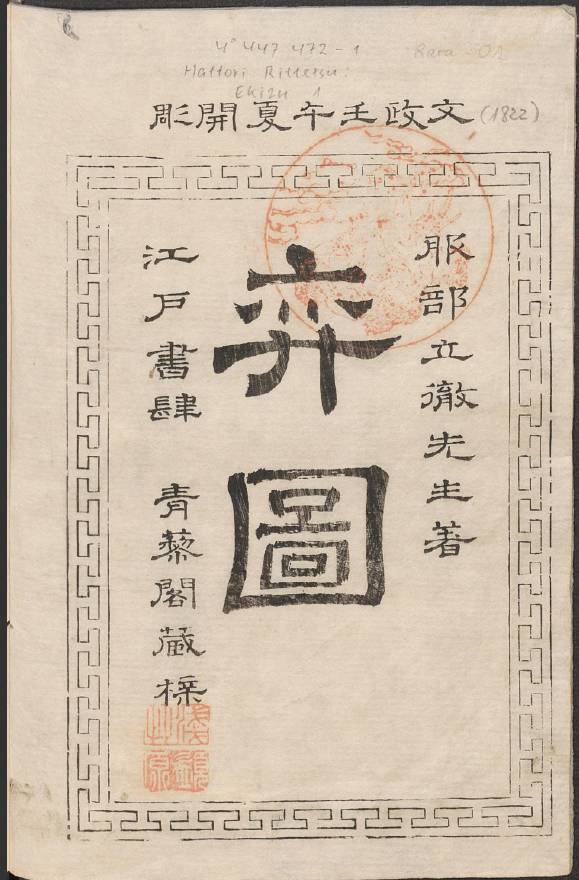 4° 447 472-1
Rara-
Hattori Rittetsu:
Ekizu 1
文政壬午夏開彫 (1822)
服部立徹先生著
弈圖
江戸書肆 青藜閣蔵梓